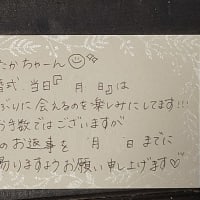 たかちゃーん
式.当日『 月 日』は
ぶりに会えるのを楽しみにしてます!!!
お手数ではございますが
のお返事を 月 日までに
賜りますようお願い申し上げます♡